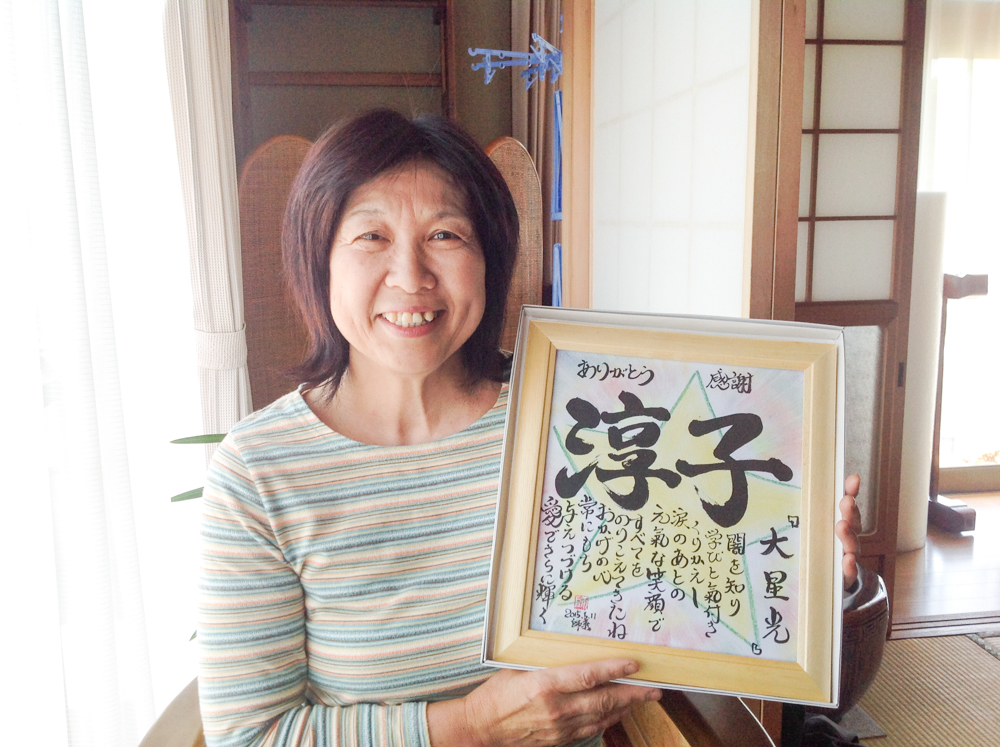 ありがとう 感謝
淳子
『大星光』
闇を知り
学びと氣付き
くりかえし
涙のあとの
元氣な笑顔で
すべてを
のりこえてきたね
おかげの心
常にもち
与えつづける
愛でさらに輝く